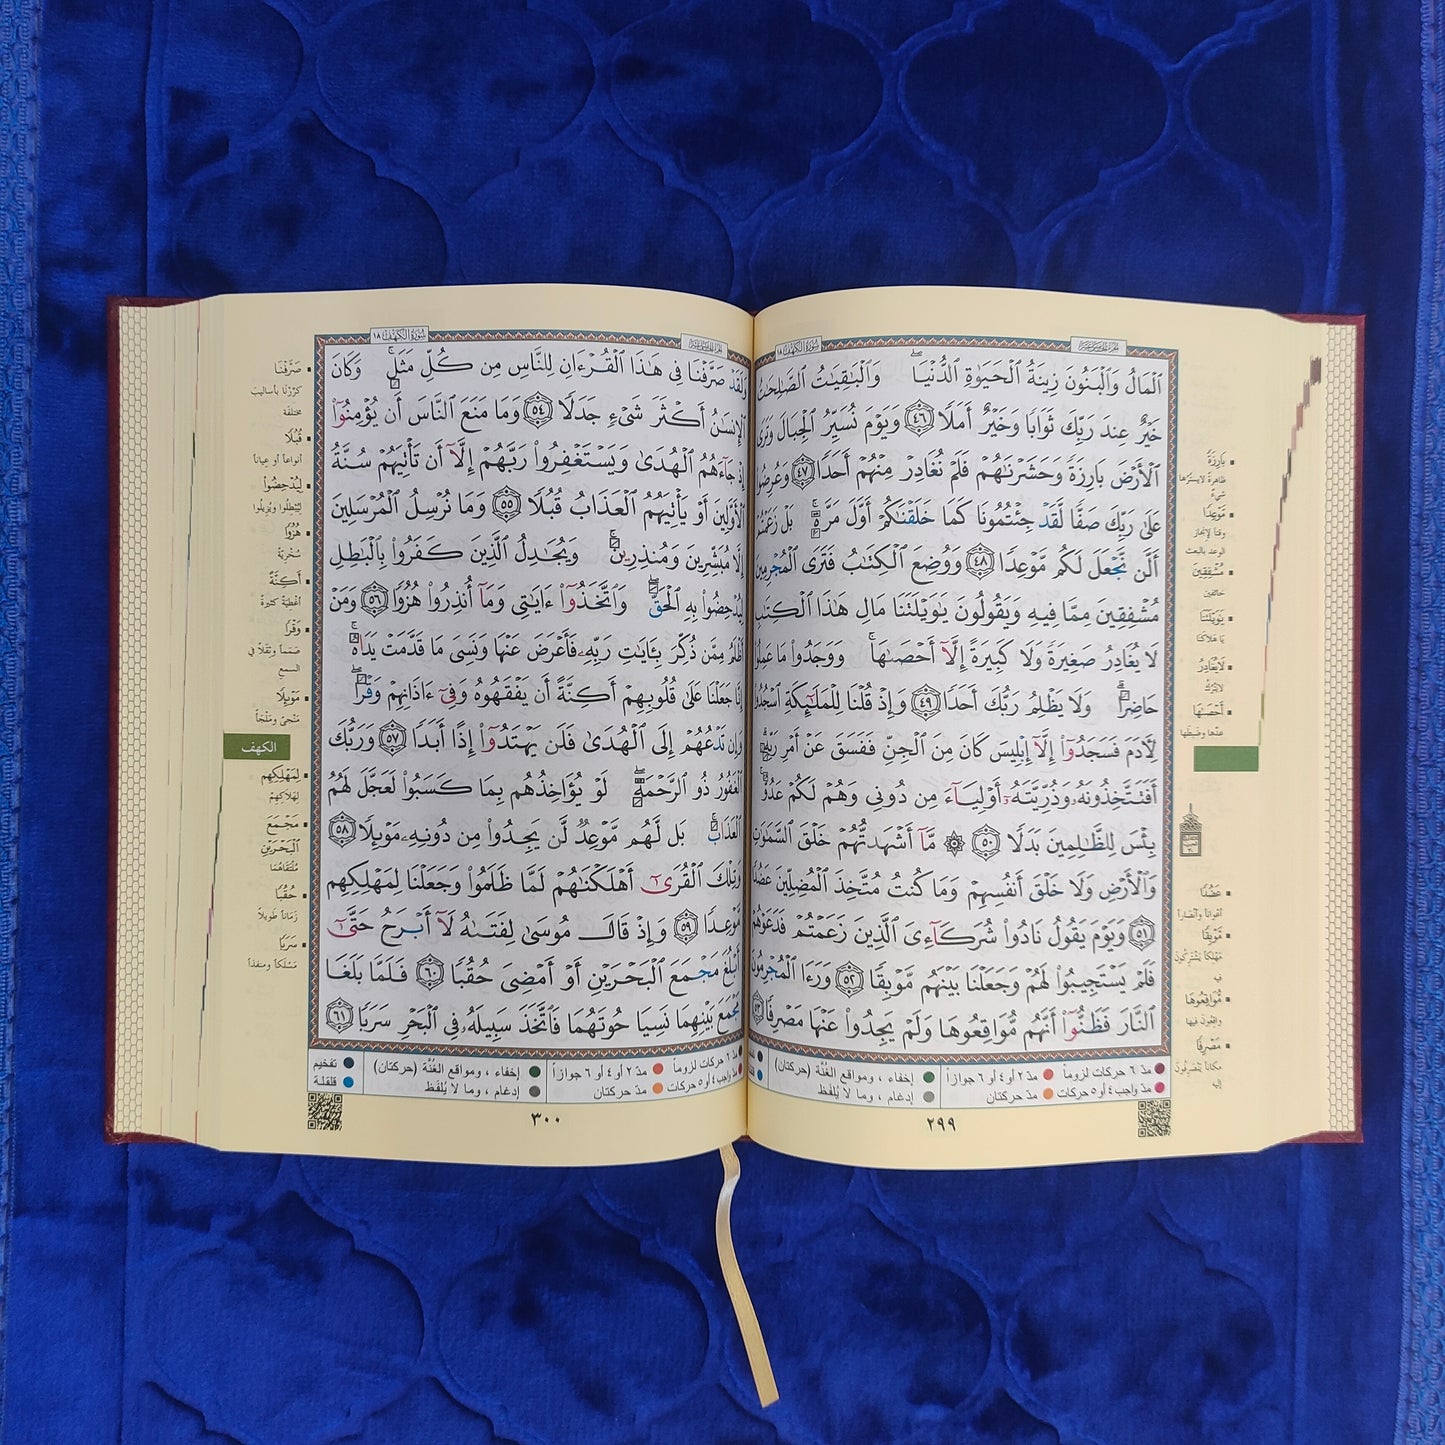 سُورَةُ الكَهْفِ ١٨
ٱلْمَالُ وَٱلْبَنُونَ زِينَةُ ٱلْحَيَوٰةِ ٱلدُّنْيَا ۖ وَٱلْبَـٰقِيَـٰتُ ٱلصَّـٰلِحَـٰتُ
خَيْرٌ عِندَ رَبِّكَ ثَوَابًا وَخَيْرٌ أَمَلًا ٤٦ وَيَوْمَ نُسَيِّرُ ٱلْجِبَالَ وَتَرَى
ٱلْأَرْضَ بَارِزَةً وَحَشَرْنَـٰهُمْ فَلَمْ نُغَادِرْ مِنْهُمْ أَحَدًا ٤٧ وَعُرِضُوا۟
عَلَىٰ رَبِّكَ صَفًّا لَّقَدْ جِئْتُمُونَا كَمَا خَلَقْنَـٰكُمْ أَوَّلَ مَرَّةٍۭ ۚ بَلْ زَعَمْتُمْ
أَلَّن نَّجْعَلَ لَكُم مَّوْعِدًا ٤٨ وَوُضِعَ ٱلْكِتَـٰبُ فَتَرَى ٱلْمُجْرِمِينَ
مُشْفِقِينَ مِمَّا فِيهِ وَيَقُولُونَ يَـٰوَيْلَتَنَا مَالِ هَـٰذَا ٱلْكِتَـٰبِ
لَا يُغَادِرُ صَغِيرَةً وَلَا كَبِيرَةً إِلَّآ أَحْصَىٰهَا ۚ وَوَجَدُوا۟ مَا عَمِلُوا۟
حَاضِرًا ۗ وَلَا يَظْلِمُ رَبُّكَ أَحَدًا ٤٩ وَإِذْ قُلْنَا لِلْمَلَـٰٓئِكَةِ ٱسْجُدُوا۟
لِـَٔادَمَ فَسَجَدُوٓا۟ إِلَّآ إِبْلِيسَ كَانَ مِنَ ٱلْجِنِّ فَفَسَقَ عَنْ أَمْرِ رَبِّهِۦٓ ۗ
أَفَتَتَّخِذُونَهُۥ وَذُرِّيَّتَهُۥٓ أَوْلِيَآءَ مِن دُونِى وَهُمْ لَكُمْ عَدُوٌّۢ ۚ
بِئْسَ لِلظَّـٰلِمِينَ بَدَلًا ٥٠ ۞ مَّآ أَشْهَدتُّهُمْ خَلْقَ ٱلسَّمَـٰوَٰتِ
وَٱلْأَرْضِ وَلَا خَلْقَ أَنفُسِهِمْ وَمَا كُنتُ مُتَّخِذَ ٱلْمُضِلِّينَ عَضُدًا
٥١ وَيَوْمَ يَقُولُ نَادُوا۟ شُرَكَآءِىَ ٱلَّذِينَ زَعَمْتُمْ فَدَعَوْهُمْ
فَلَمْ يَسْتَجِيبُوا۟ لَهُمْ وَجَعَلْنَا بَيْنَهُم مَّوْبِقًا ٥٢ وَرَءَا ٱلْمُجْرِمُونَ
ٱلنَّارَ فَظَنُّوٓا۟ أَنَّهُم مُّوَاقِعُوهَا وَلَمْ يَجِدُوا۟ عَنْهَا مَصْرِفًا ٥٣
بَارِزَةً
ظاهرةً لا يسترُها
شيءٌ
مَّوْعِدًا
وقتاً لإنجاز
الوعد بالبعث
مُشْفِقِينَ
خائفين
يَـٰوَيْلَتَنَا
يَا هَلاكَنا
لَا يُغَادِرُ
لا يَتْرُكُ
أَحْصَىٰهَا
عدَّها وضبطَها
عَضُدًا
أعْواناً وأنصَاراً
مَّوْبِقًا
مَهْلِكاً يَشْتَرِكُونَ
فِيه
مُّوَاقِعُوهَا
واقِعُونَ فيها
مَصْرِفًا
مكاناً يَنْصَرِفُونَ
إِلَيه
مدّ ٦ حركات لزوماً مدّ ٢ أو ٤ أو ٦ جوازاً إخفاء ، ومواقع الغُنَّة (حركتان)
مدّ واجب ٤ أو ٥ حركات مدّ حركتان إدغام ، وما لا يُلفَظ
٢٩٩
سُورَةُ الكَهْفِ ١٨
وَلَقَدْ صَرَّفْنَا فِى هَـٰذَا ٱلْقُرْءَانِ لِلنَّاسِ مِن كُلِّ مَثَلٍ ۚ وَكَانَ
ٱلْإِنسَـٰنُ أَكْثَرَ شَىْءٍ جَدَلًا ٥٤ وَمَا مَنَعَ ٱلنَّاسَ أَن يُؤْمِنُوٓا۟
إِذْ جَآءَهُمُ ٱلْهُدَىٰ وَيَسْتَغْفِرُوا۟ رَبَّهُمْ إِلَّآ أَن تَأْتِيَهُمْ سُنَّةُ
ٱلْأَوَّلِينَ أَوْ يَأْتِيَهُمُ ٱلْعَذَابُ قُبُلًا ٥٥ وَمَا نُرْسِلُ ٱلْمُرْسَلِينَ
إِلَّا مُبَشِّرِينَ وَمُنذِرِينَ ۚ وَيُجَـٰدِلُ ٱلَّذِينَ كَفَرُوا۟ بِٱلْبَـٰطِلِ
لِيُدْحِضُوا۟ بِهِ ٱلْحَقَّ ۖ وَٱتَّخَذُوٓا۟ ءَايَـٰتِى وَمَآ أُنذِرُوا۟ هُزُوًا ٥٦ وَمَنْ
أَظْلَمُ مِمَّن ذُكِّرَ بِـَٔايَـٰتِ رَبِّهِۦ فَأَعْرَضَ عَنْهَا وَنَسِىَ مَا قَدَّمَتْ يَدَاهُ ۚ
إِنَّا جَعَلْنَا عَلَىٰ قُلُوبِهِمْ أَكِنَّةً أَن يَفْقَهُوهُ وَفِىٓ ءَاذَانِهِمْ وَقْرًا ۖ
وَإِن تَدْعُهُمْ إِلَى ٱلْهُدَىٰ فَلَن يَهْتَدُوٓا۟ إِذًا أَبَدًا ٥٧ وَرَبُّكَ
ٱلْغَفُورُ ذُو ٱلرَّحْمَةِ ۖ لَوْ يُؤَاخِذُهُم بِمَا كَسَبُوا۟ لَعَجَّلَ لَهُمُ
ٱلْعَذَابَ ۚ بَل لَّهُم مَّوْعِدٌ لَّن يَجِدُوا۟ مِن دُونِهِۦ مَوْئِلًا ٥٨
وَتِلْكَ ٱلْقُرَىٰٓ أَهْلَكْنَـٰهُمْ لَمَّا ظَلَمُوا۟ وَجَعَلْنَا لِمَهْلِكِهِم
مَّوْعِدًا ٥٩ وَإِذْ قَالَ مُوسَىٰ لِفَتَىٰهُ لَآ أَبْرَحُ حَتَّىٰٓ
أَبْلُغَ مَجْمَعَ ٱلْبَحْرَيْنِ أَوْ أَمْضِىَ حُقُبًا ٦٠ فَلَمَّا بَلَغَا
مَجْمَعَ بَيْنِهِمَا نَسِيَا حُوتَهُمَا فَٱتَّخَذَ سَبِيلَهُۥ فِى ٱلْبَحْرِ سَرَبًا ٦١
صَرَّفْنَا
كَرَّرْنَا بأساليبَ
مختلفة
قُبُلًا
أنواعاً أو عِياناً
لِيُدْحِضُوا۟
لِيُبْطِلُوا ويُزيلُوا
هُزُوًا
سُخْرِيَةً
أَكِنَّةً
أغْطِيَةً كثيرةً
وَقْرًا
صَمَماً وثِقَلاً في
السمع
مَوْئِلًا
مَنْجىً ومَلْجَأً
الكهف
لِمَهْلِكِهِم
لِهَلاكِهِمْ
مَجْمَعَ
ٱلْبَحْرَيْنِ
مُلْتَقَاهُمَا
حُقُبًا
زَمَاناً طويلاً
سَرَبًا
مَسْلَكاً ومنفذاً
مدّ ٦ حركات لزوماً مدّ ٢ أو ٤ أو ٦ جوازاً إخفاء ، ومواقع الغُنَّة (حركتان) تفخيم
مدّ واجب ٤ أو ٥ حركات مدّ حركتان إدغام ، وما لا يُلفَظ قلقلة
٣٠٠